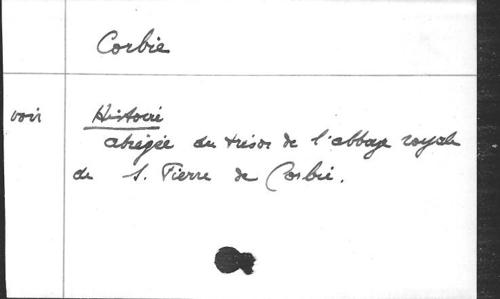 Corbie
voir Histoire
abrégée du trésor de l'abbaye royale
de S. Pierre de Corbie.